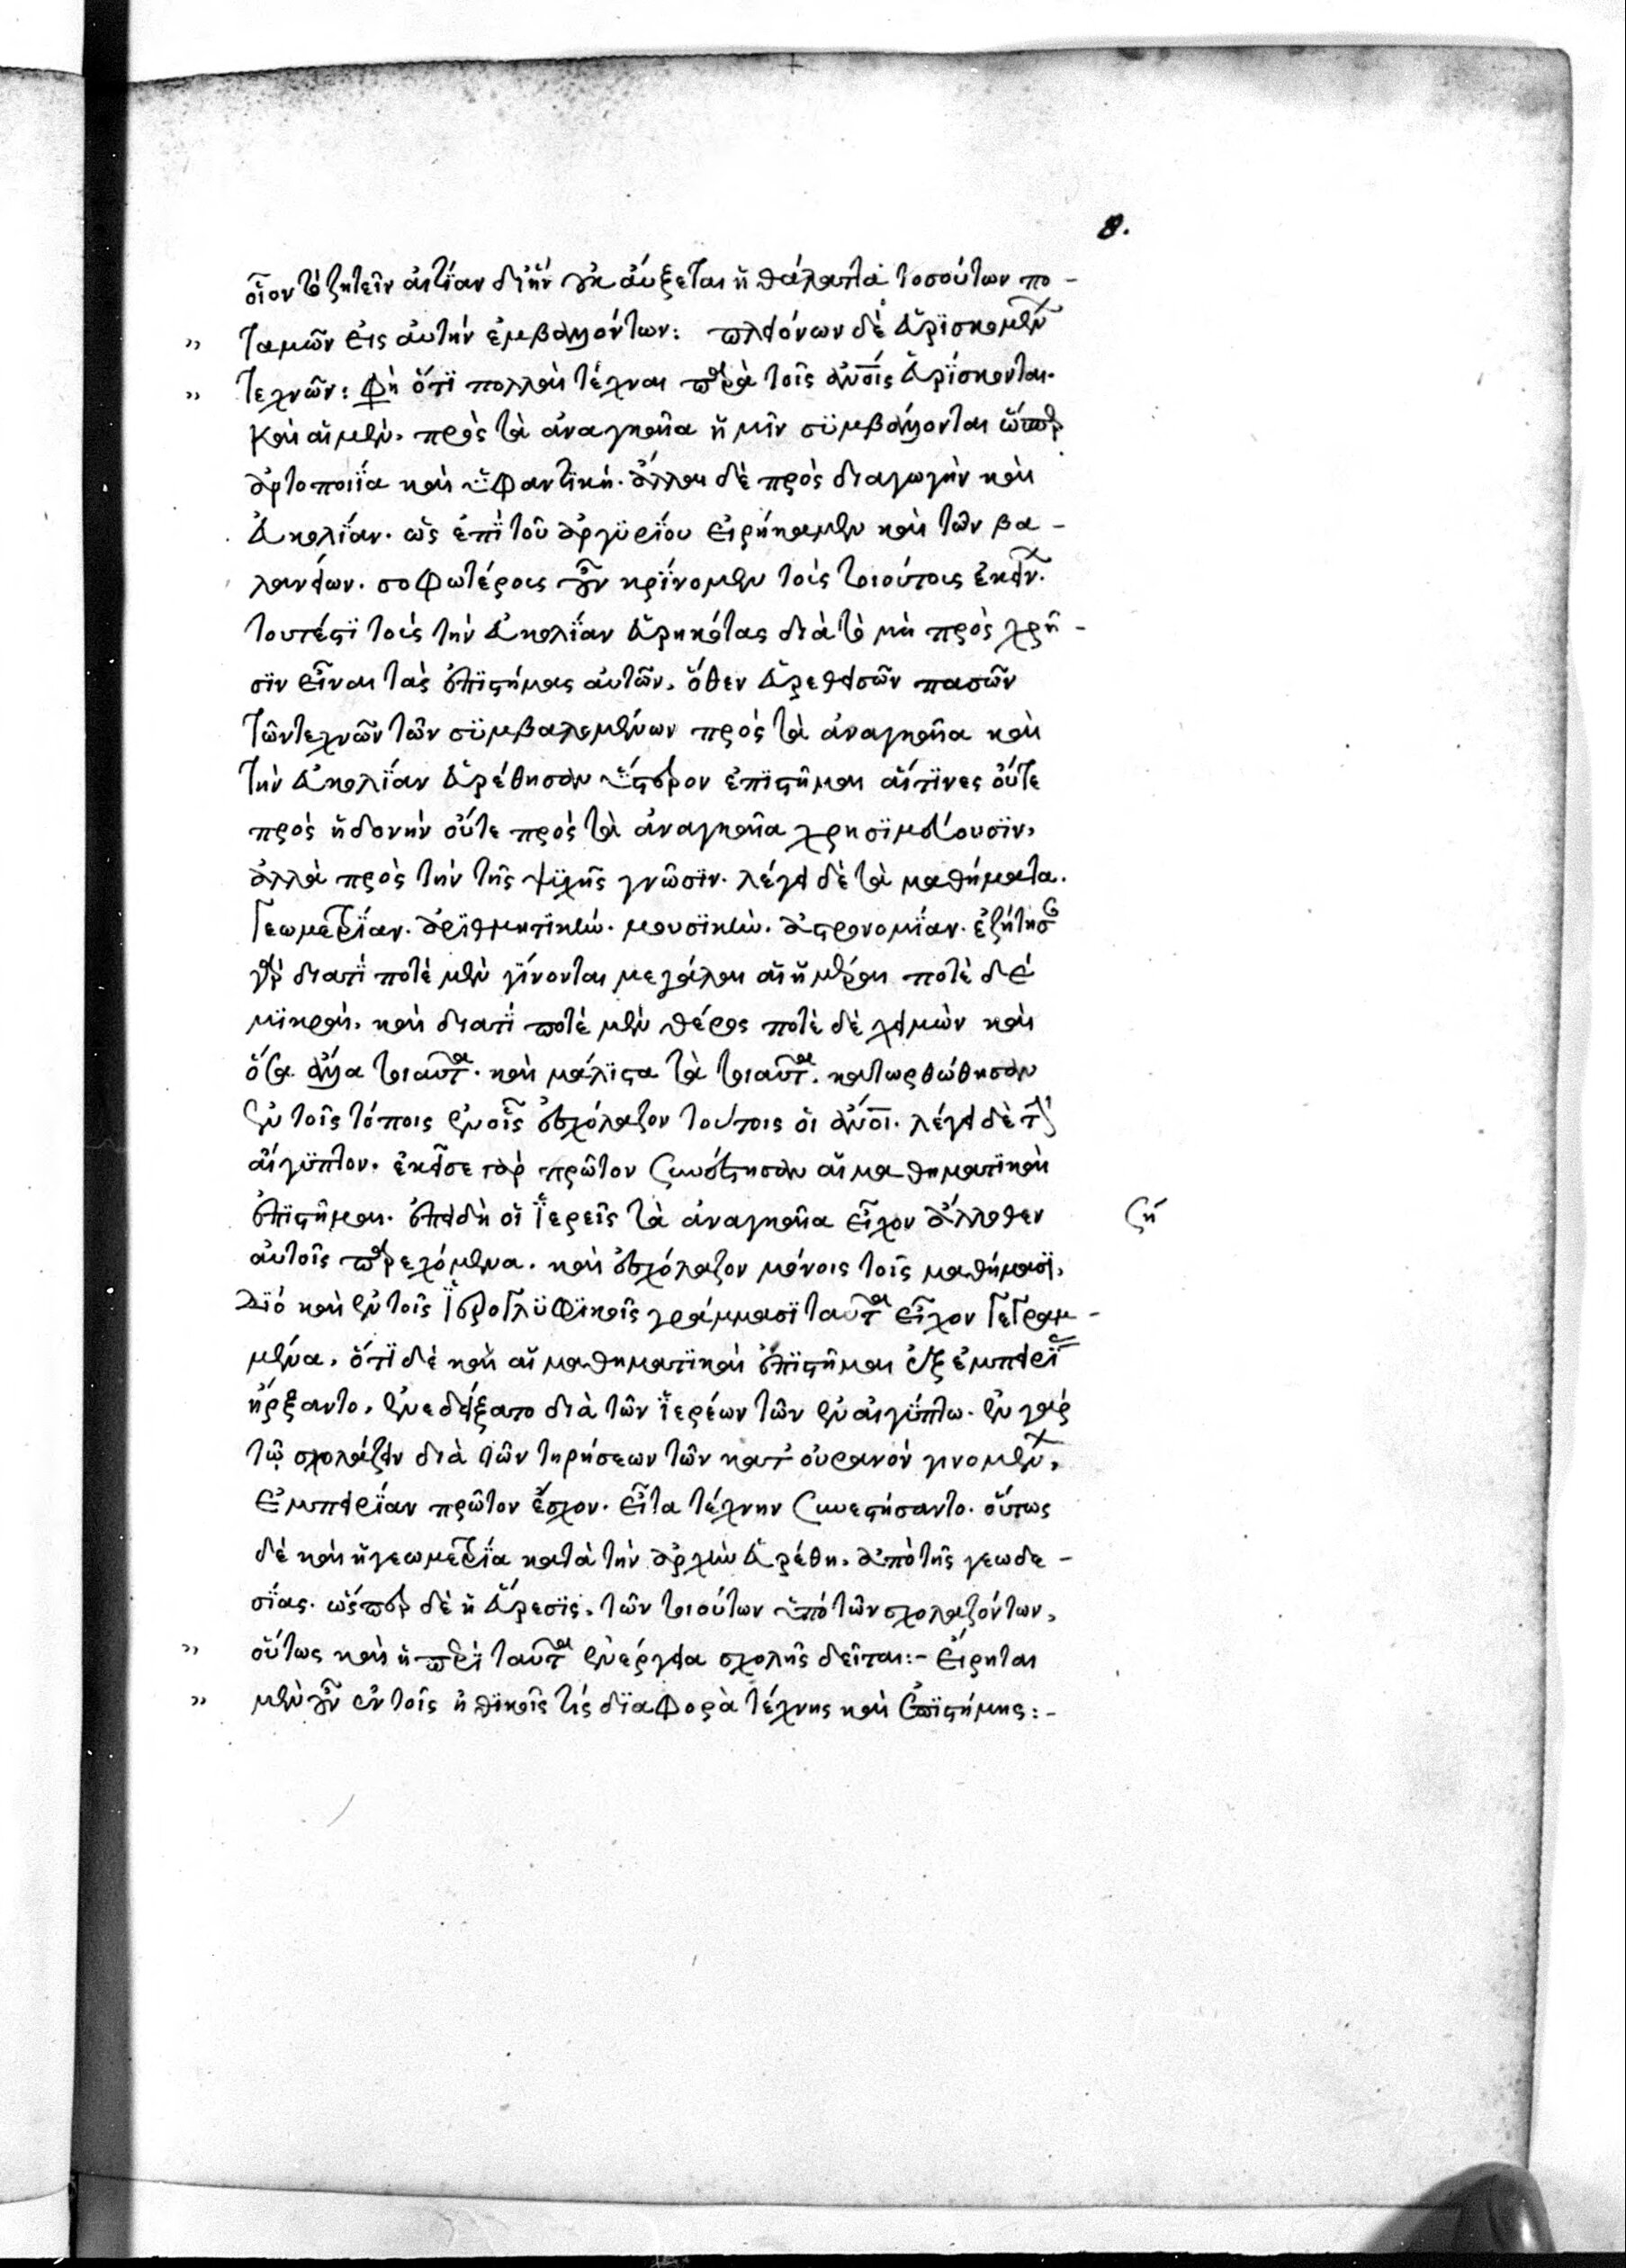 8.
οἷον τὸ ζητεῖν αἰτίαν δι' ἣν οὐκ αὔξεται ἡ θάλαττα τοσούτων πο-
ταμῶν εἰς αὐτὴν ἐμβαλλόντων: πλειόνων δὲ εὑρισκομένων
τεχνῶν: Φὴ ὅτι πολλαὶ τέχναι παρὰ τοῖς ἀνοις εὑρίσκονται.
καὶ αἱ μὲν πρὸς τὰ ἀναγκαῖα ἡμῖν συμβάλλονται ὥσπερ
ἀρτοποιΐα καὶ ὑφαντική. ἄλλαι δὲ πρὸς διαγωγὴν καὶ
εὐκολίαν. ὡς ἐπὶ τοῦ ἀργυρίου εἰρήκαμεν καὶ τῶν βα-
λαντίων. σοφωτέρους οὖν κρίνομεν τοὺς τοιούτους ἐκείνων.
τουτέστι τοὺς τὴν εὐκολίαν εὑρηκότας διὰ τὸ μὴ πρὸς χρῆ-
σιν εἶναι τὰς ἐπιστήμας αὐτῶν. ὅθεν εὑρεθεισῶν πασῶν
τῶν τεχνῶν τῶν συμβαλομένων πρὸς τὰ ἀναγκαῖα καὶ
τὴν εὐκολίαν εὑρέθησαν ὕστερον ἐπιστῆμαι αἵτινες οὔτε
πρὸς ἡδονὴν οὔτε πρὸς τὰ ἀναγκαῖα χρησιμεύουσιν,
ἀλλὰ πρὸς τὴν τῆς ψυχῆς γνῶσιν. λέγει δὲ τὰ μαθήματα.
Γεωμετρίαν. ἀριθμητικήν. μουσικήν. ἀστρονομίαν. ἐζήτησαν
γὰρ διατί ποτὲ μὲν γίνονται μεγάλαι αἱ ἡμέραι ποτὲ δὲ
μικραί. καὶ διατί ποτὲ μὲν θέρος ποτὲ δὲ χειμὼν καὶ
ὅσα ἄλλα τοιαῦτα. καὶ μάλιστα τὰ τοιαῦτα. κατωρθώθησαν
ἐν τοῖς τόποις ἐν οἷς ἐσχόλαζον τούτοις οἱ ἄνοι. λέγει δὲ τὴν
αἴγυπτον. ἐκεῖσε γὰρ πρῶτον συνέστησαν αἱ μαθηματικαὶ
ἐπιστῆμαι. ἐπειδὴ οἱ ἱερεῖς τὰ ἀναγκαῖα εἶχον ἄλλοθεν
ση
αὐτοῖς παρεχόμενα. καὶ ἐσχόλαζον μόνοις τοῖς μαθήμασι.
Διὸ καὶ ἐν τοῖς ἱερογλυφικοῖς γράμμασι ταῦτα εἶχον γεγραμ-
μένα. ὅτι δὲ καὶ αἱ μαθηματικαὶ ἐπιστῆμαι ἐξ ἐμπειρίας
ἤρξαντο, ἐνεδείξατο διὰ τῶν ἱερέων τῶν ἐν αἰγύπτω. ἐν γὰρ
τῷ σχολάζειν διὰ τῶν τηρήσεων τῶν κατ' οὐρανὸν γινομένων,
ἐμπειρίαν πρῶτον ἔσχον. εἶτα τέχνην συνεστήσαντο. οὕτως
δὲ καὶ ἡ γεωμετρία κατὰ τὴν ἀρχὴν εὑρέθη, ἀπὸ τῆς γεωδε-
σίας. ὥσπερ δὲ ἡ εὕρεσις, τῶν τοιούτων ὑπὸ τῶν σχολαζόντων,
οὕτως καὶ ἡ περὶ ταῦτα ἐνέργεια σχολῆς δεῖται:- Εἴρηται
μὲν οὖν ἐν τοῖς ἠθικοῖς τίς διαφορὰ τέχνης καὶ ἐπιστήμης:-